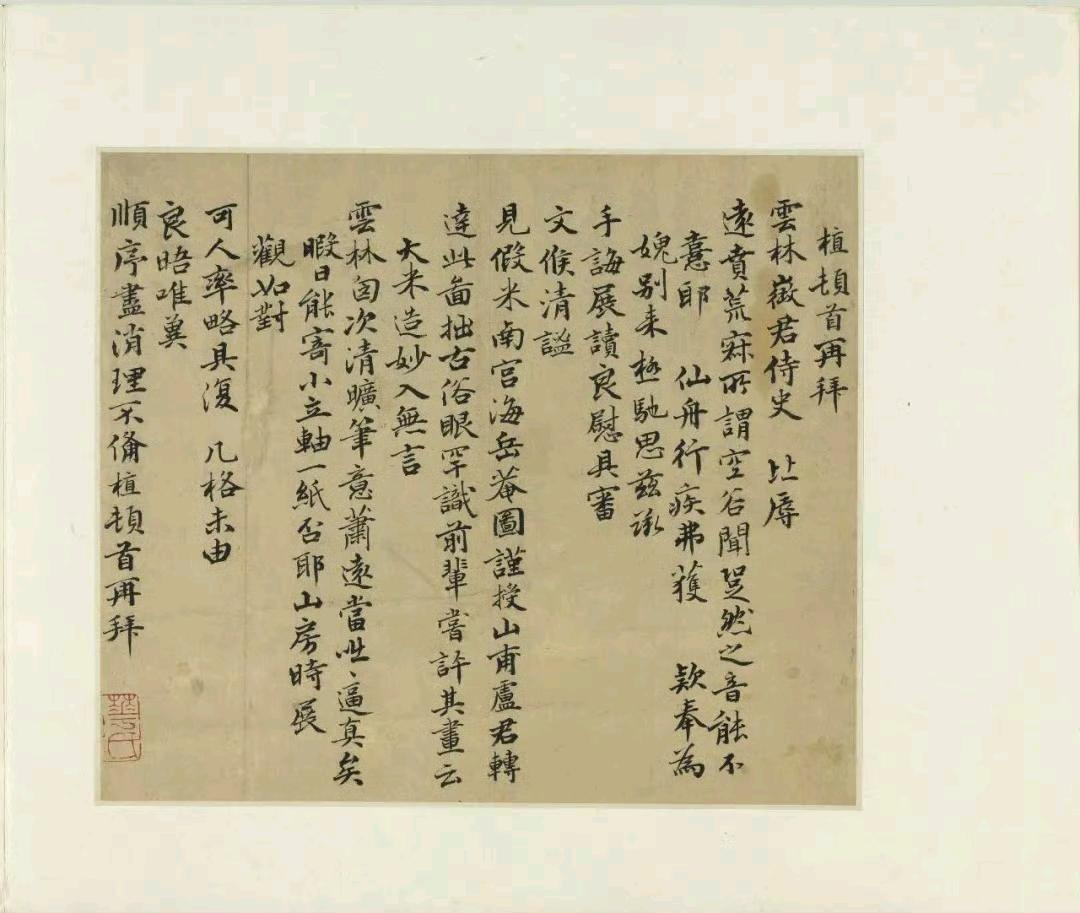 植頓首再拜
雲林徵君侍史 比辱
遠賁荒寐所謂空谷聞跫然之音能不
憙耶 仙舟行疾弗獲 欵奉為
媿别来極馳思兹承
手誨展讀良慰具審
文候清謐
見假米南宫海岳菴圖謹授山甫盧君轉
達此畵拙古俗眼罕識前輩嘗許其畫云
大米造妙入無言
雲林囪次清曠筆意蕭遠當咄〻逼真矣
暇日能寄小立軸一紙否耶山房時展
觀如對
可人率略具復 几格未由
良晤唯冀
順序盡消理不備植頓首再拜